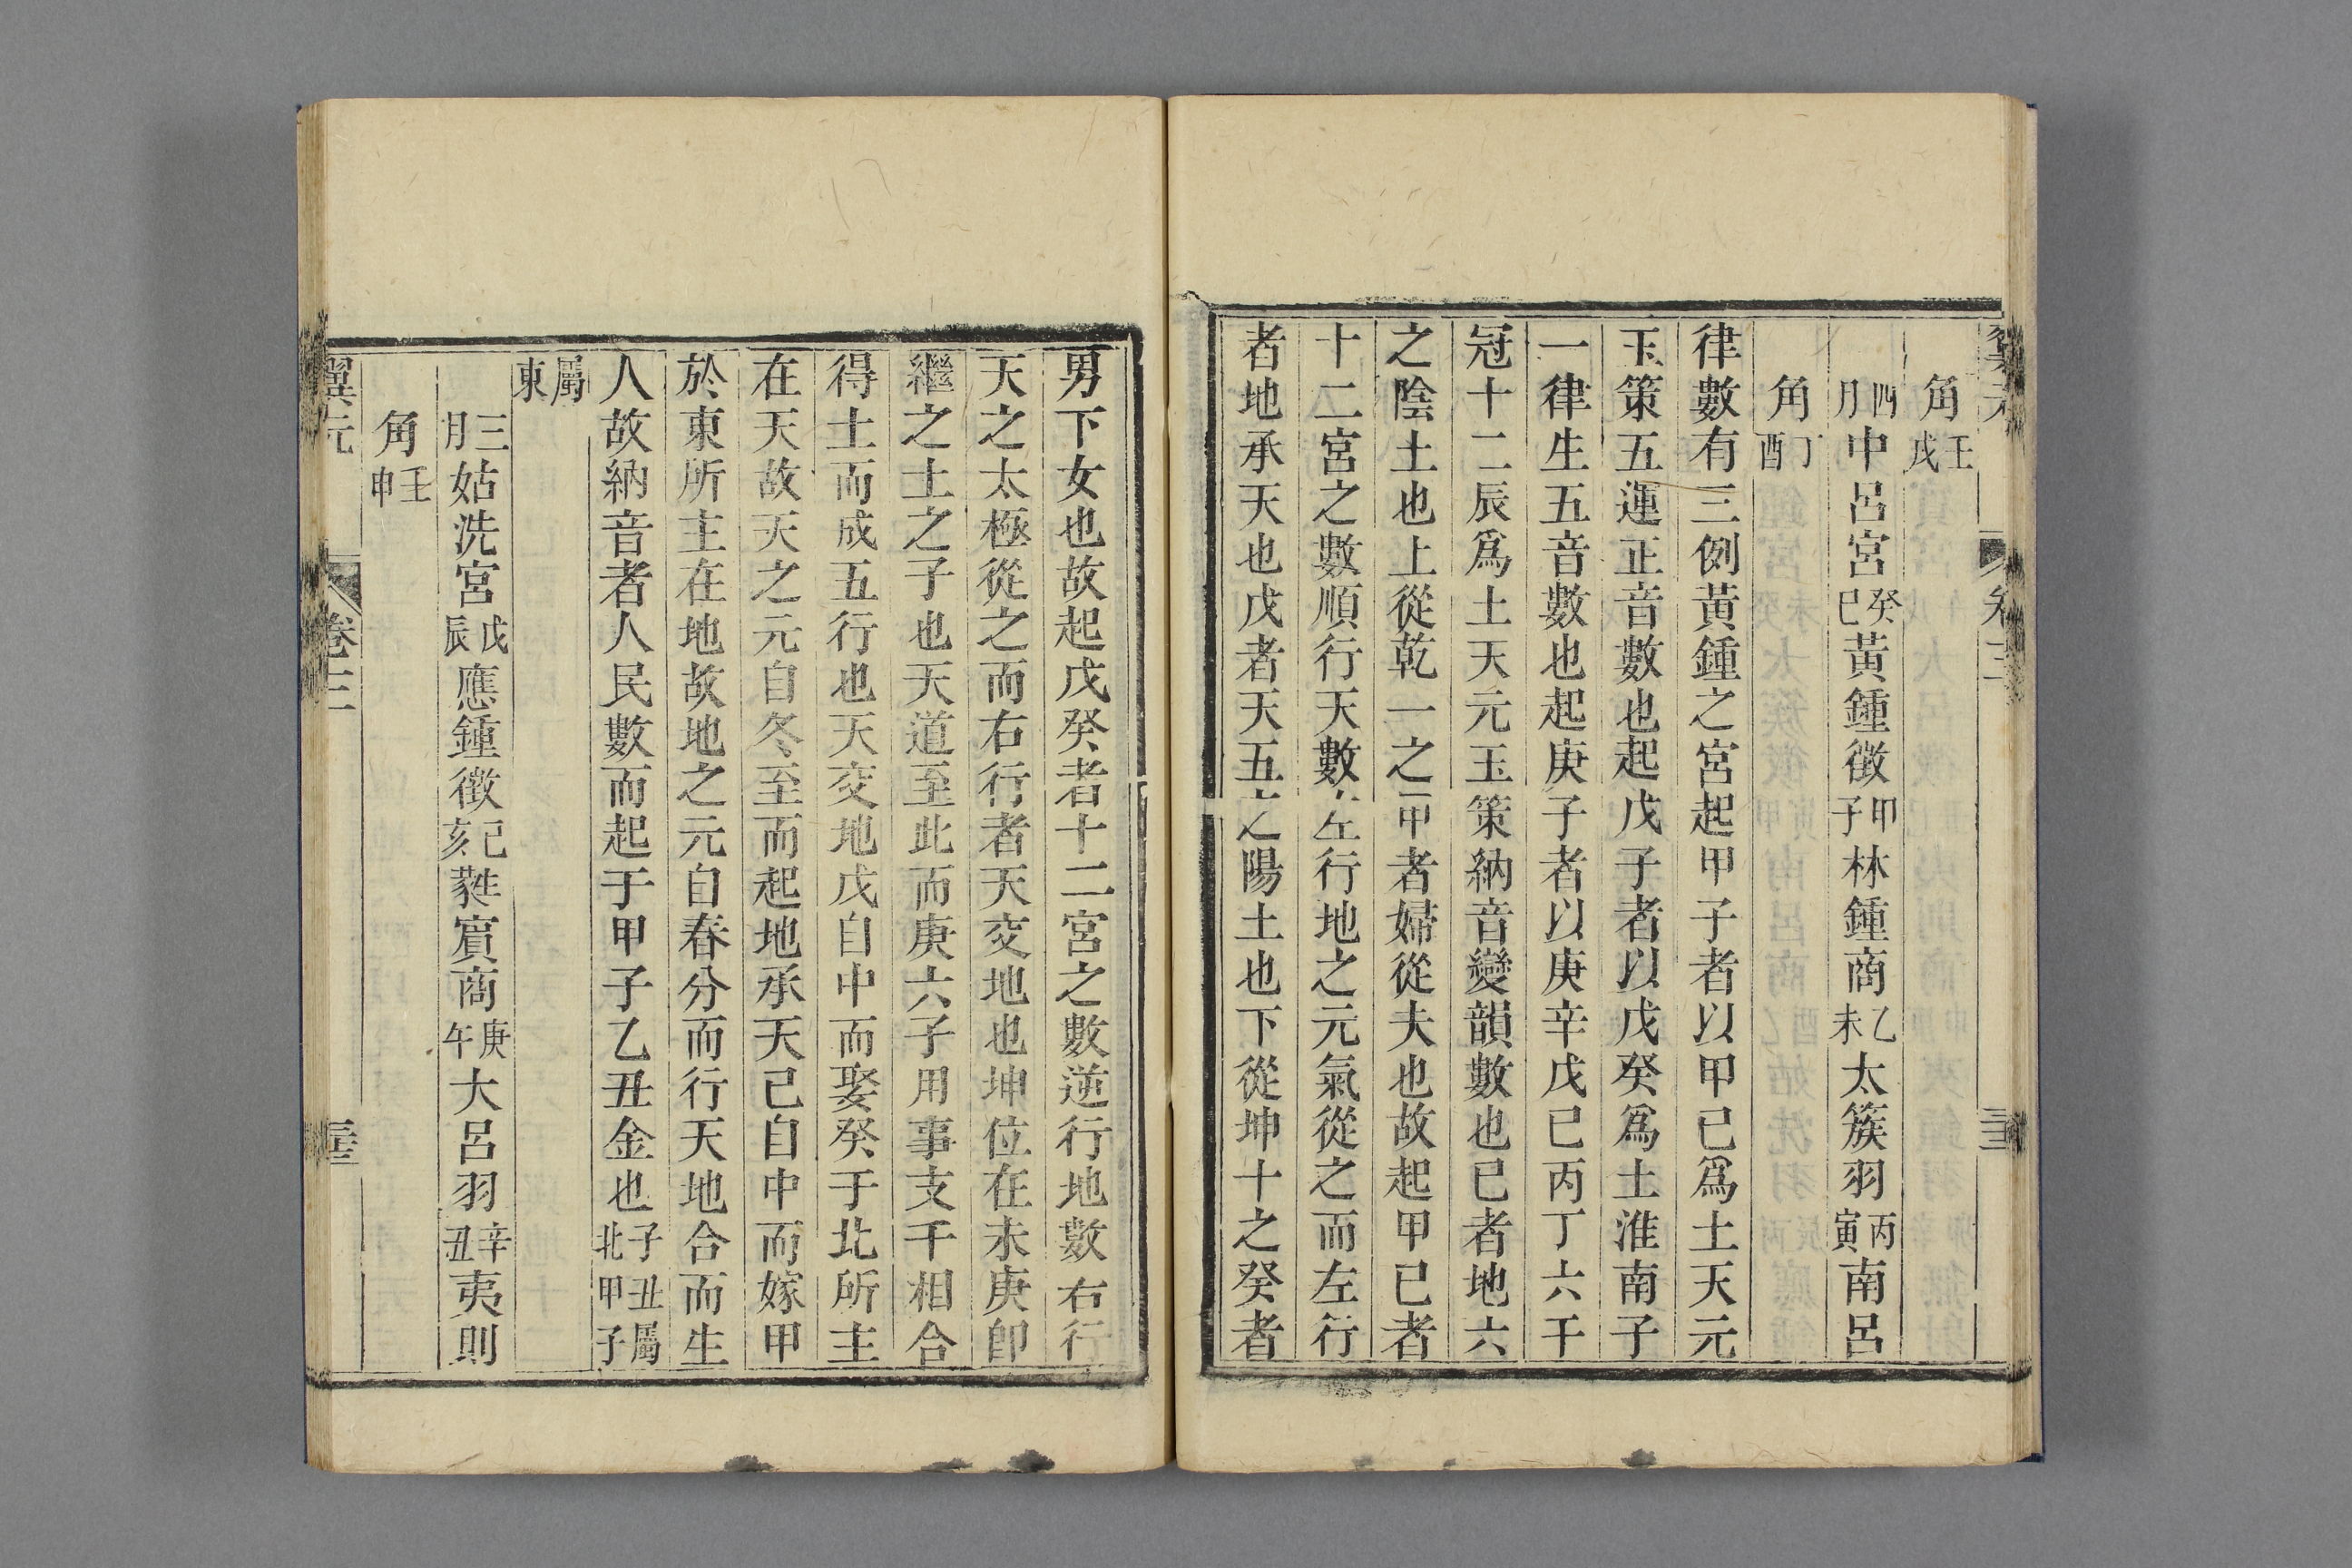 角壬戌
四月中呂宮癸巳黃鍾徵甲子林鍾商乙未太簇羽丙寅南呂
角丁酉
律數有三例黃鍾之宮起甲子者以甲已爲土天元
玉策五運正音數也起戊子者以戊癸爲土淮南子
一律生五音數也起庚子者以庚辛戊巳丙丁六干
冠十二辰爲土天元玉策納音變韻數也巳者地六
之陰土也上從乾一之甲者婦從夫也故起甲巳者
十二宮之數順行天數左行地之元氣從之而左行
者地承天也戊者天五之陽土也下從坤十之癸者
男下女也故起戊癸者十二宮之數逆行地數右行
天之太極從之而右行者天交地也坤位在未庚卽
繼之土之子也天道至此而庚六子用事支干相合
得土而成五行也天交地戊自中而娶癸于北所主
在天故天之元自冬至而起地承天己自中而嫁甲
於東所主在地故地之元自春分而行天地合而生
人故納音者人民數而起于甲子乙丑金也子丑屬北甲子
屬東
三月姑洗宮戊辰應鍾徵己亥蕤賓商庚午大呂羽辛丑夷則
角壬申
翼元 卷三